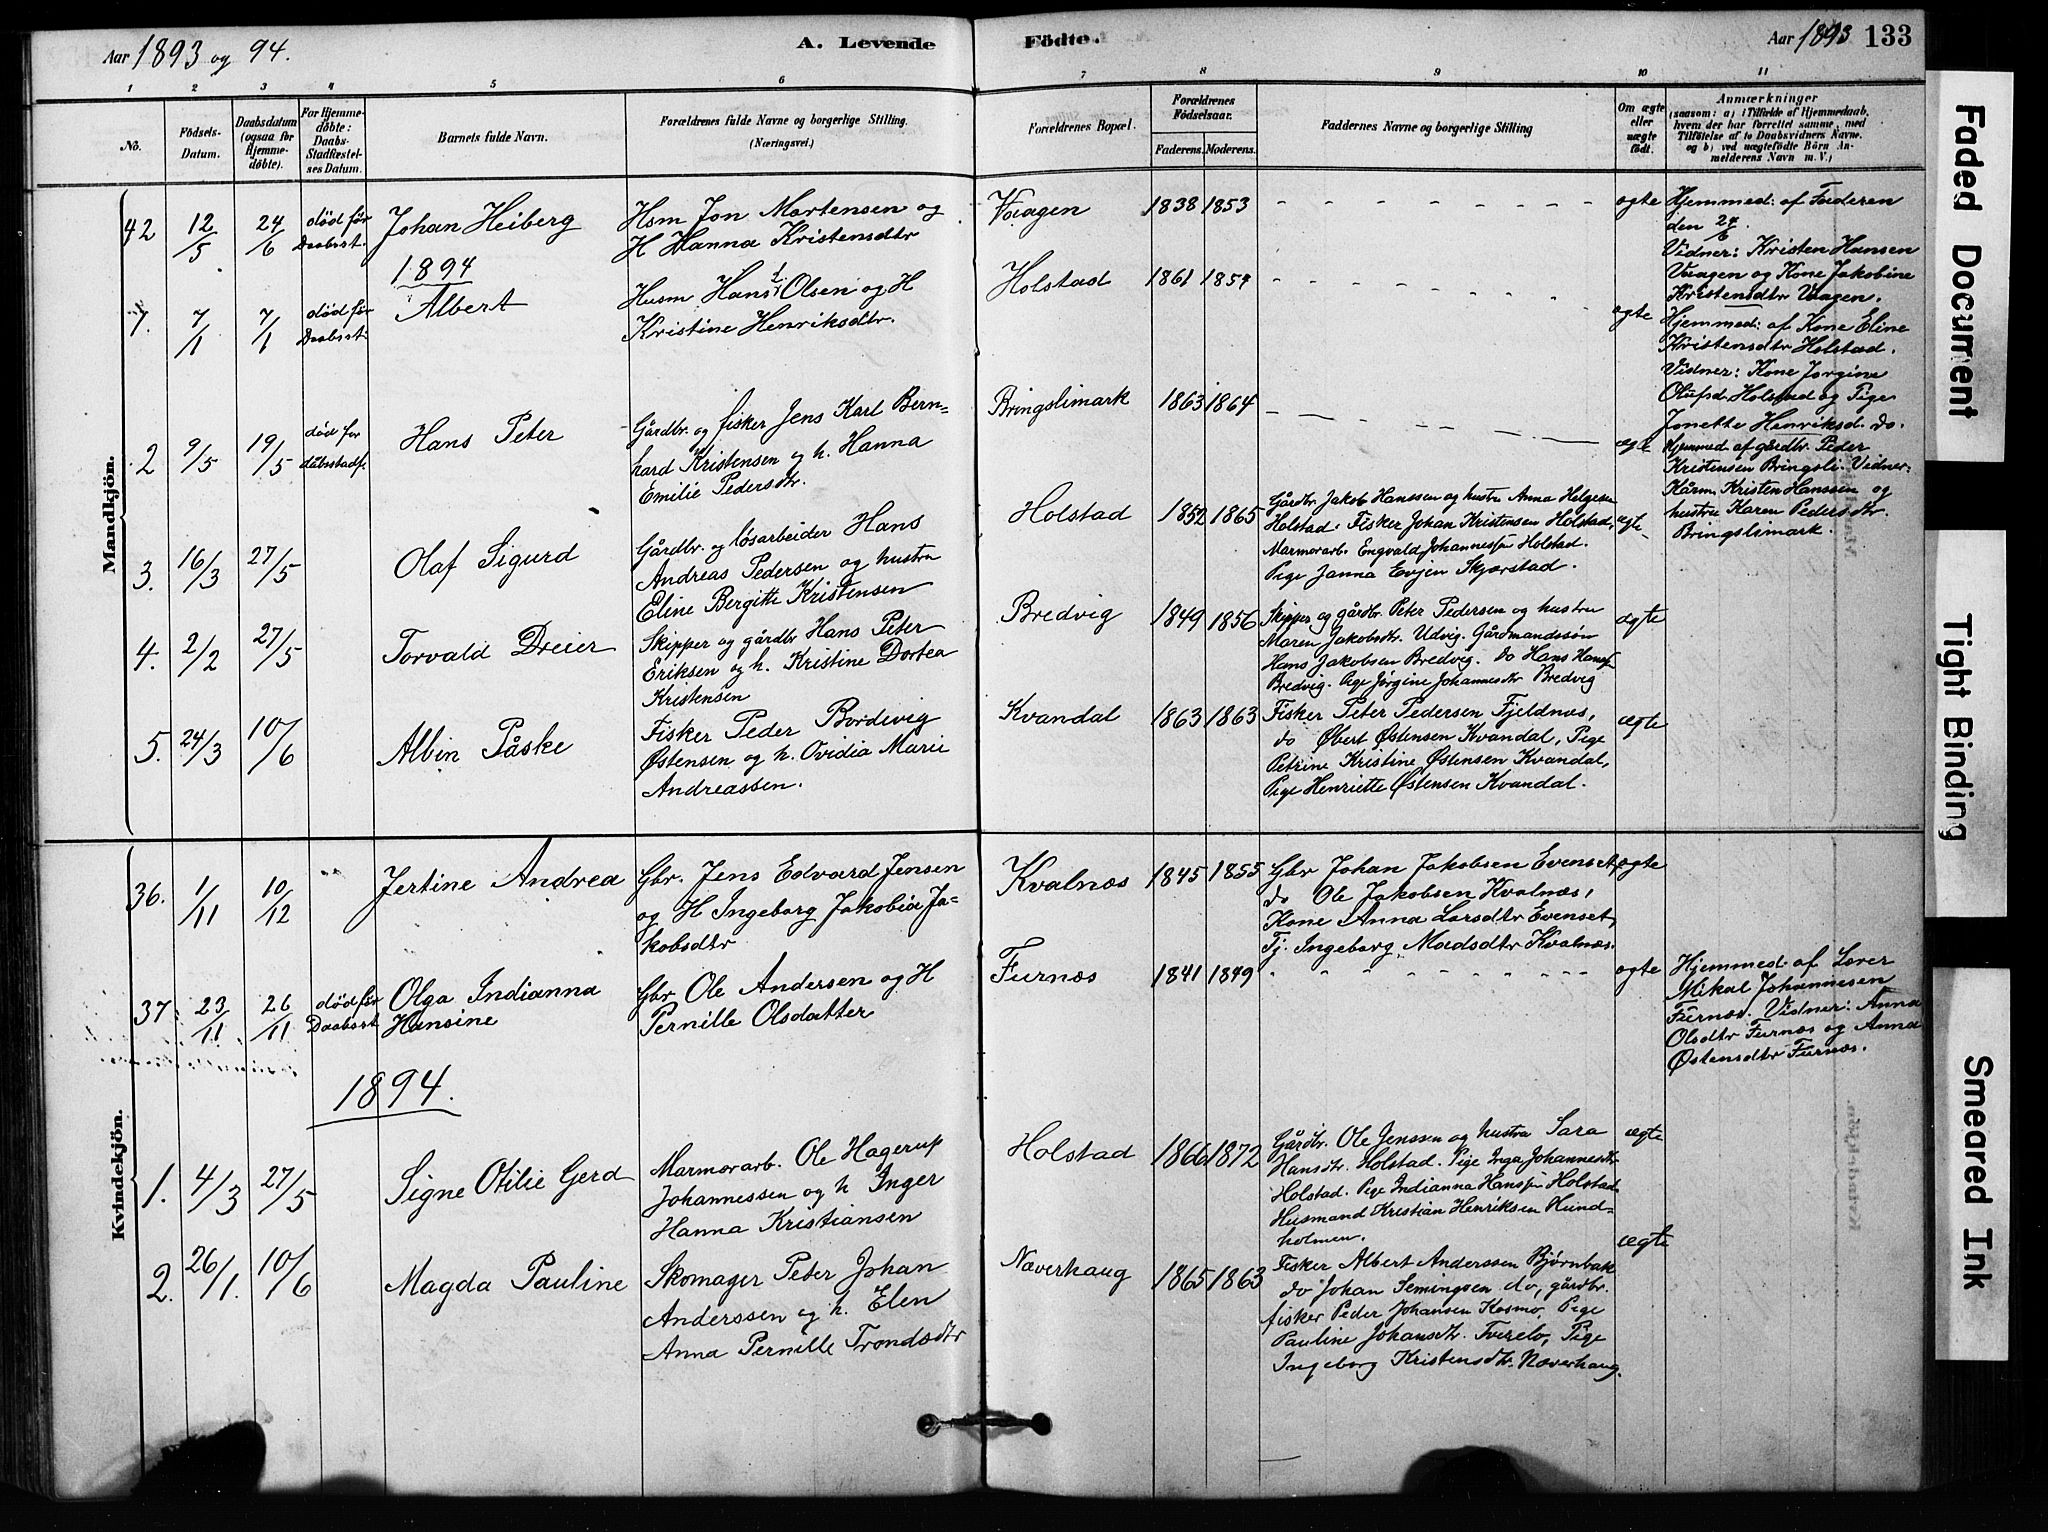 Aar 1893 og 94.
A. Levende
Födte.
Aar 1893
133
1 2 3 4 5 6 7 8 9 10 11
No.
Födsels-
Datum.
Daabsdatum
(ogsaa for
Hjemme-
døbte).
For Hjemme-
døbte:
Daabs-
Stadfæstel-
ses Datum.
Barnets fulde Navn.
Forældrenes fulde Navne og borgerlige Stilling.
(Næringsvei.)
Forældrenes Bopæl.
Forældrenes
Fødselsaar.
Faderens. Moderens.
Faddernes Navne og borgerlige Stilling
Om ægte
eller
uægte
födt.
Anmærkninger
(saasom: a) i Tilfælde af Hjemmedaab,
hvem der har forrettet samme, med
Tilföielse af to Daabsvidners Navne,
og b) ved uægtefödte Börn An-
melderens Navn m. V.)
Mandkjön.
42
12/5
24/6
død før
Daabsst.
Johan Heiberg
Hsm Jon Mortensen og
H Hanna Kristensdtr
Vaagen
1838 1853
ægte
Hjemmed: af Faderen
den 24/6.
Vidner: Kristen Hansen
Vaagen og Kone Jakobine
Kristensdtr Vaagen.
1894
1.
7/1
7/1
død før
Daabsst
Albert
Husm Hans Olsen og H
Kristine Henriksdtr.
Holstad
1861 1854
ægte
Hjemmed: af Kone Eline
Kristensdtr Holstad.
Vidner: Kone Jørgine
Olufsd. Holstad og Pige
Jonette Henriksd. do.
2
9/5
19/5
død før
dåbsstadf.
Hans Peter
Gårdbr. og fisker Jens Karl Bern-
hard Kristensen og h. Hanna
Emilie Pedersdtr.
Bringslimark
1863 1864
ægte
Hjemmed af gårdbr. Peder
Kristensen Bringsli. Vidner:
Kårm. Kristen Hanssen og
hustru Karen Pedersdtr
Bringslimark.
3.
16/3
27/5
Olaf Sigurd
Gårdbr. og løsarbeider Hans
Andreas Pedersen og hustru
Eline Bergitte Kristensen
Holstad
1852 1865
Gårdbr. Jakob Hanssen og hustru Anna Helgesen
Holstad. Fisker Johan Kristensen Holstad.
Marmorarb. Engvald Johannessen Holstad.
Pige Janna Evjen Skjærstad.
ægte
4.
2/2
27/5
Torvald Dreier
Skipper og gårdbr Hans Peter
Eriksen og h. Kristine Dortea
Kristensen
Bredvig
1849 1856
Skipper og gårdbr. Peter Pedersen og hustru
Maren Jakobsdtr. Udvig. Gårdmandssøn
Hans Jakobsen Bredvig. do Hans Hanss.
Bredvig. Pige Jørgine Johannesdtr Bredvig
ægte
5.
24/3
10/6
Albin Påske
Fisker Peder Bordevig
Østensen og h. Ovidia Marie
Andreassen.
Kvandal
1863 1863
Fisker Peter Pedersen Fjeldnæs,
do Øbert Østensen Kvandal, Pige
Petrine Kristine Østensen Kvandal,
Pige Henriette Østensen Kvandal.
ægte
Kvindekjön.
36.
1/11
10/12
Jertine Andrea
Gbr. Jens Edvard Jensen
og H Ingeborg Jakobia Ja-
kobsdtr
Kvalnæs
1845 1855
Gbr Johan Jakobsen Evenset,
do Ole Jakobsen Kvalnæs,
Kone Anna Larsdtr Evenset,
Tj. Ingeborg Madsdtr Kvalnæs.
ægte
37
23/11
26/11
død før
Daabsst
Olga Indianna
Hansine
Gbr Ole Andersen og H
Pernille Olsdatter
Furnæs
1841 1849
ægte
Hjemmed af Lærer
Mikal Johannesen
Furnæs. Vidner: Anna
Olsdtr Furnæs og Anna
Østensdtr Furnæs.
1894.
1.
4/3
27/5
Signe Otilie Gerd
Marmorarb. Ole Hagerup
Johannessen og h Inger
Hanna Kristiansen
Holstad
1866 1872
Gårdbr. Ole Jenssen og hustru Sara
Hansdtr. Holstad. Pige Inga Johannesdtr
Holstad. Pige Indianna Hanssen Holstad
Husmand Kristian Henriksen Hund-
holmen.
ægte
2.
26/1.
10/6
Magda Pauline
Skomager Peter Johan
Anderssen og h. Elen
Anna Pernille Trondsdtr
Næverhaug
1865 1863
Fisker Albert Anderssen Bjørnbak
do Johan Semingsen do, gårdbr.
fisker Peder Johansen Kosmo, Pige
Pauline Johansdtr. Tverelv, Pige
Ingeborg Kristensdtr. Næverhaug.
ægte
Faded Document
Tight Binding
Smeared Ink